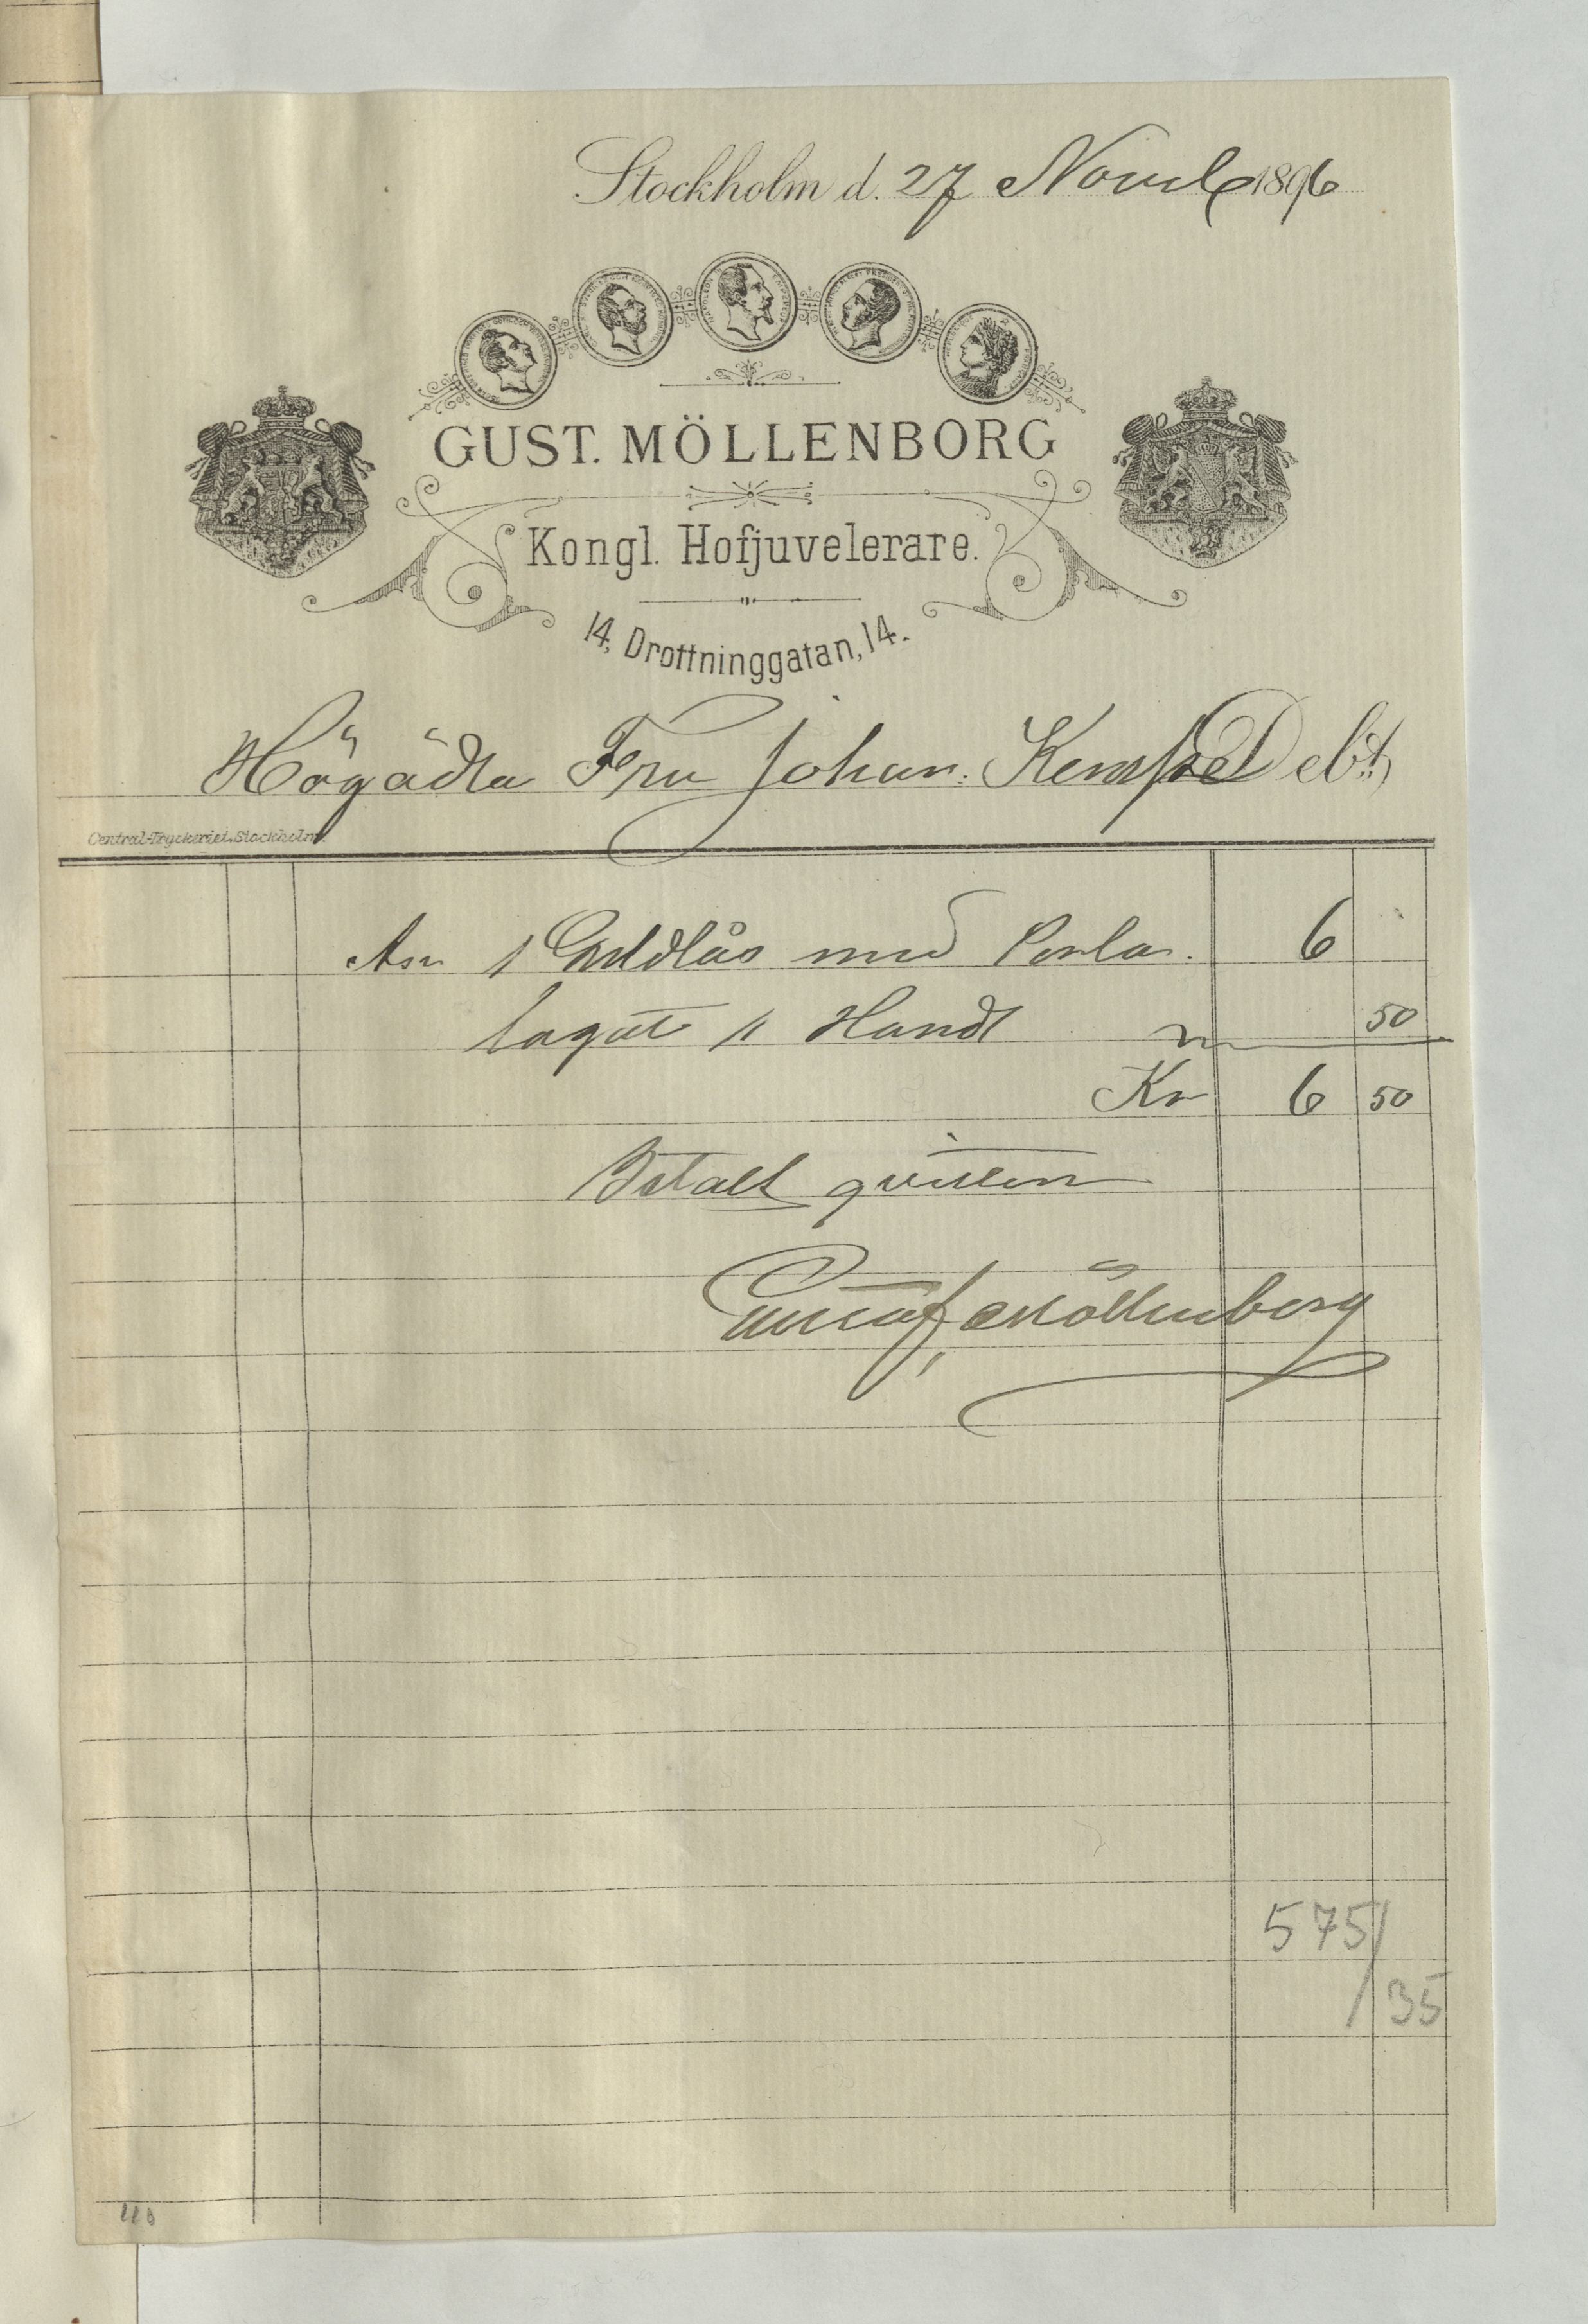 Stockholm d. 27 Novemb 1896
GUST. MÖLLENBORG
Kongl. Hofjuvelerare.
14, Drottninggatan, 14.
Högädla Fru Johan: Kempe Debet,
Central-Tryckeriet, Stockholm.
1 Guldlås med Perlor. 6
lagat 1 Hand 50
Kr 6 50
Betalt qvitteras
Gustaf Möllenborg
575/
/35